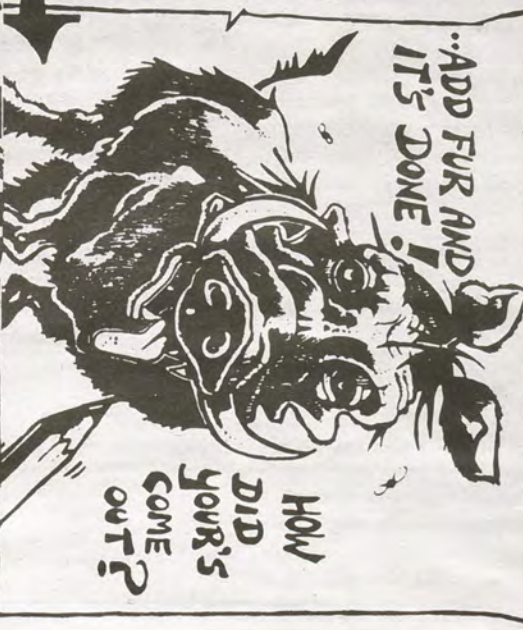 ..ADD FUR AND
IT'S DONE!
HOW
DID
YOUR'S
COME
OUT?